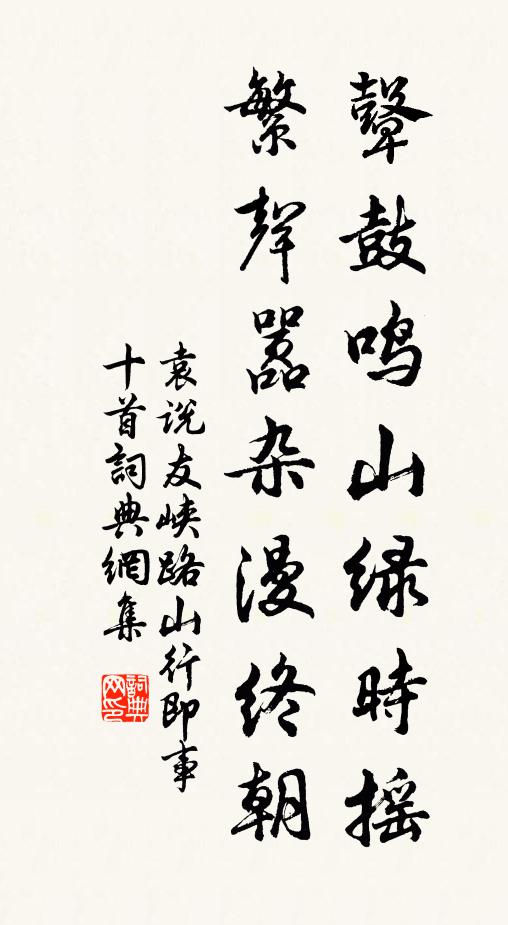 鼙鼓鸣山绿時摇
繁聲嚣杂漫终朝
袁说友峡路山行即事
十首詞典網集
詞典网印